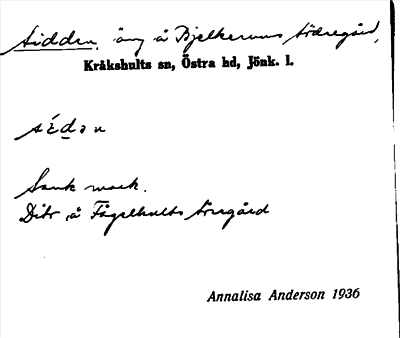 Sidden, äng å Bjelkerums Södregård,
Kråkshults sn, Östra hd, Jönk. l.
sɩ́dən
Sank mark.
Dito å Fågelhults Norregård
Annalisa Anderson 1936